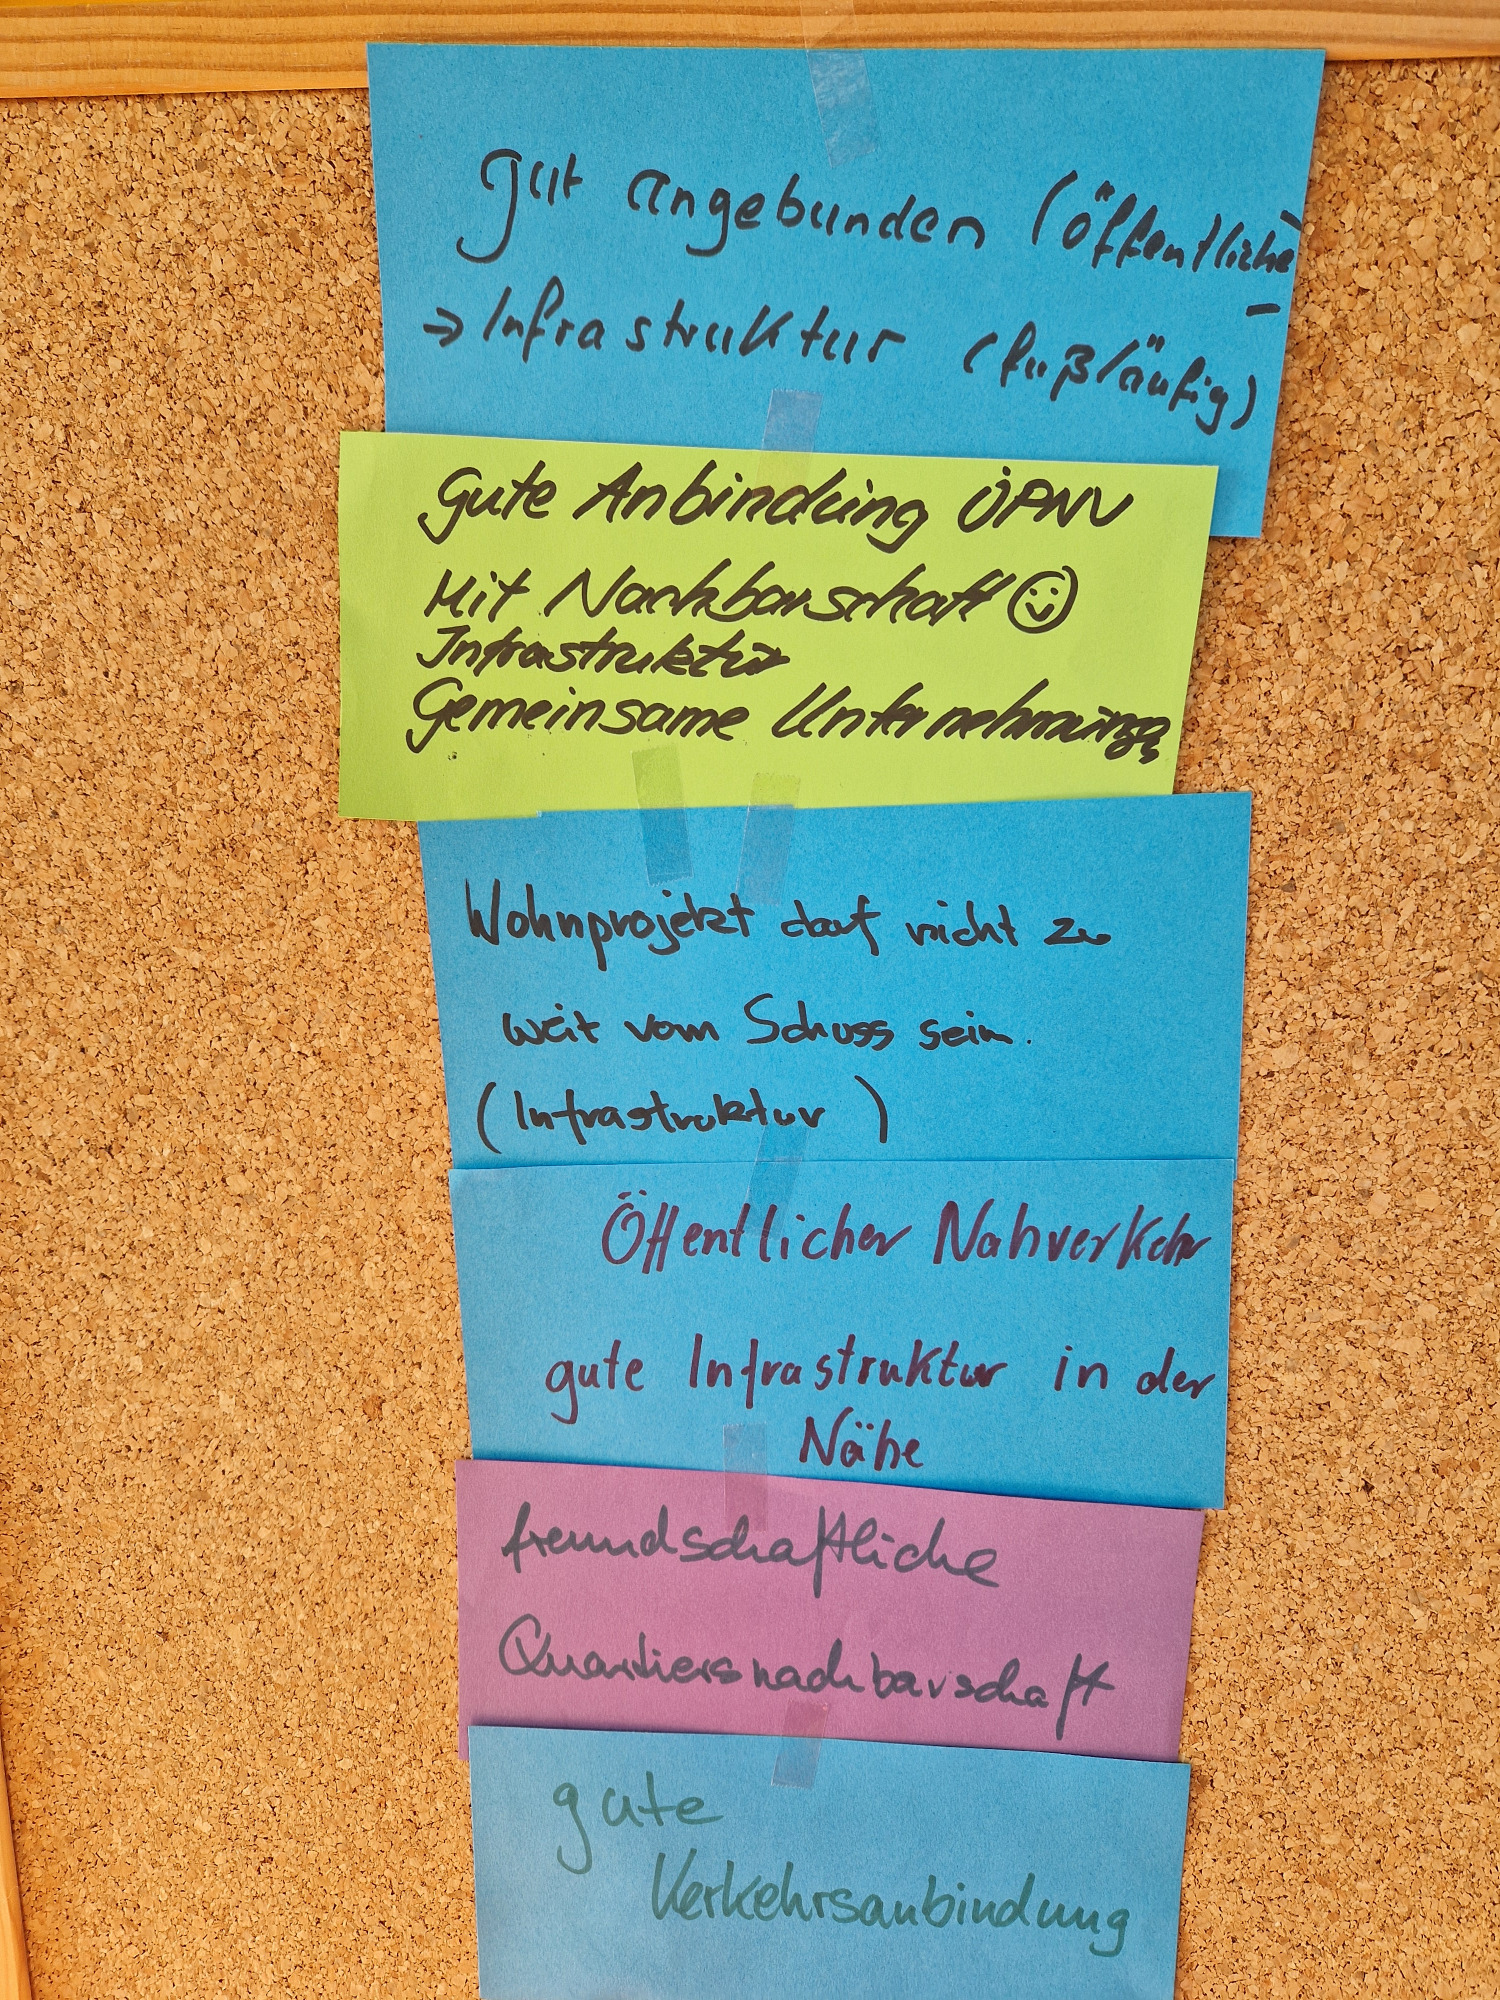 gut angebunden (öffentliche)
→ Infrastruktur (fußläufig)
Gute Anbindung ÖPNV
Mit Nachbarschaft ☺
Infrastruktur
Gemeinsame
Wohnprojekt darf nicht zu
weit vom Schuss sein.
(Infrastruktur)
Öffentlicher Nahverkehr
gute Infrastruktur in der
Nähe
freundschaftliche
Quartiersnachbarschaft
gute
Verkehrsanbindung